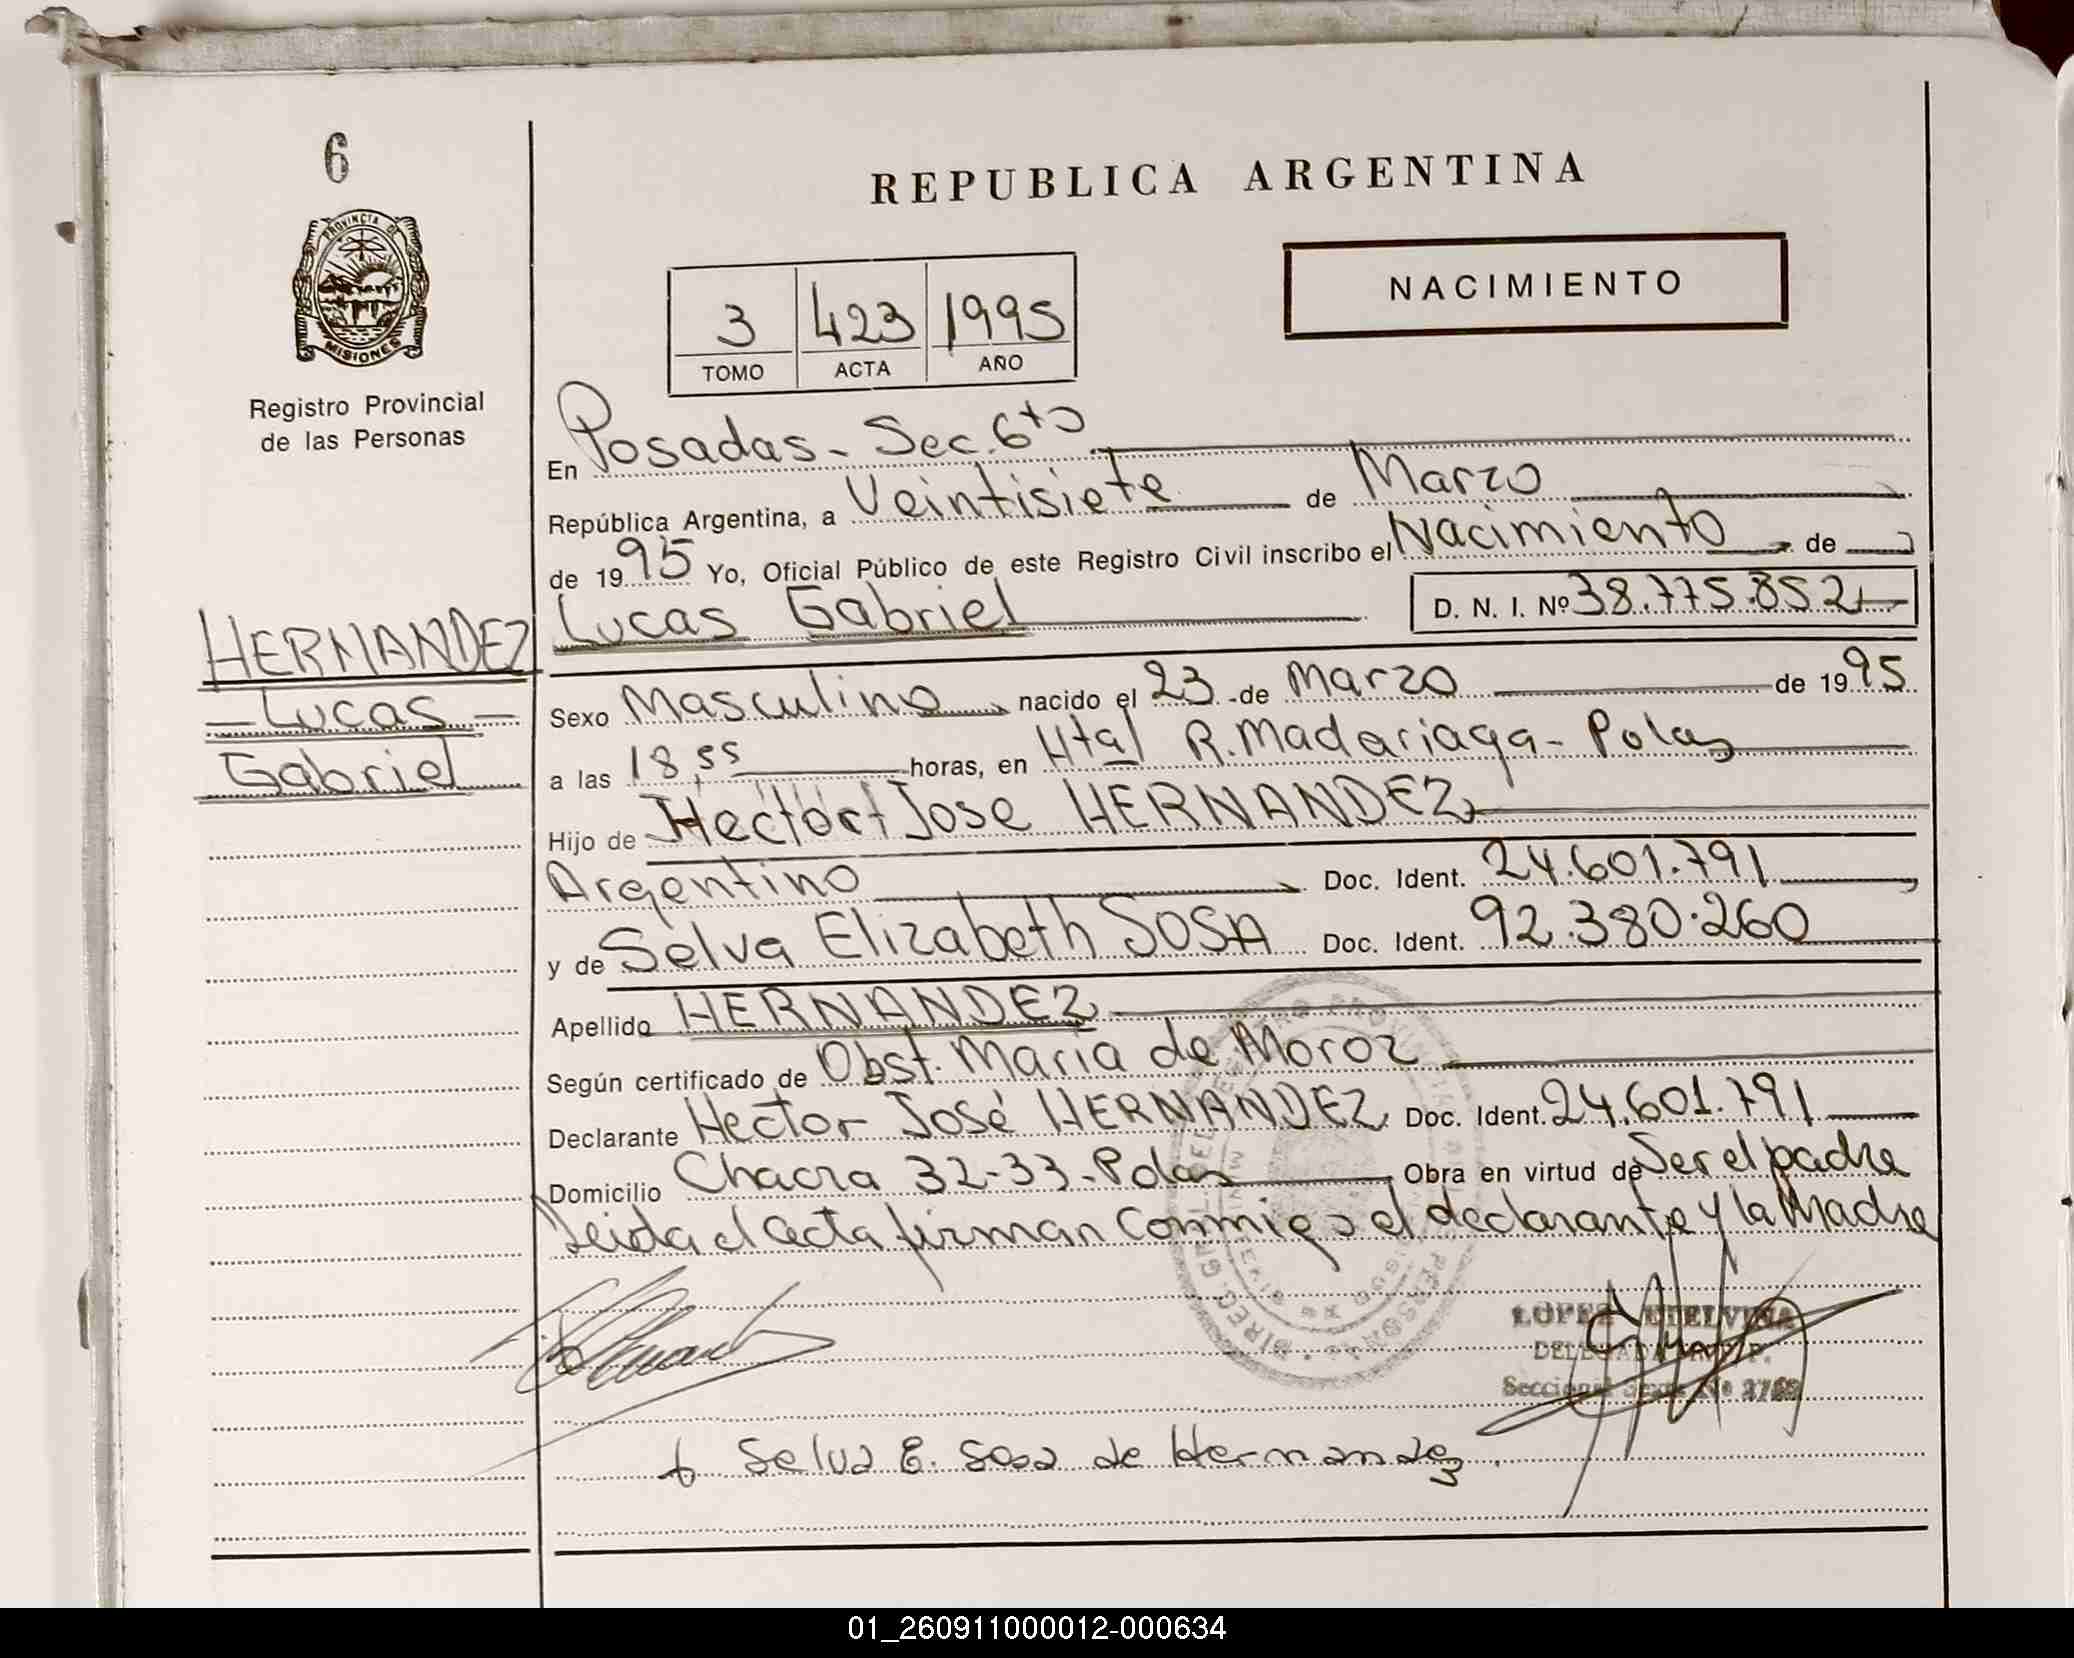 6
REPUBLICA ARGENTINA
NACIMIENTO
PROVINCIA DE
MISIONES
3 423 1995
TOMO ACTA AÑO
Registro Provincial
de las Personas
En Posadas - Sec. 6ta
República Argentina, a Veintisiete de Marzo
de 1995 Yo, Oficial Público de este Registro Civil inscribo el Nacimiento de
HERNANDEZ
Lucas
Gabriel
Lucas Gabriel D. N. I. Nº 38.775.852
Sexo Masculino nacido el 23 de Marzo de 1995
a las 18,55 horas, en Htal R. Madariaga - Pdas
Hijo de Hector Jose HERNANDEZ
Argentino Doc. Ident. 24.601.791
y de Selva Elizabeth SOSA Doc. Ident. 92.380.260
Apellido HERNANDEZ
Según certificado de Obst. Maria de Moroz
Declarante Hector José HERNANDEZ Doc. Ident. 24.601.791
Domicilio Chacra 32-33 - Pdas Obra en virtud de Ser el padre
Leida el acta firman conmigo el declarante y la Madre
LOPEZ ETELVINA
DELEGADA
Seccional Sexta
Selva E. Sosa de Hernandez
01_260911000012-000634